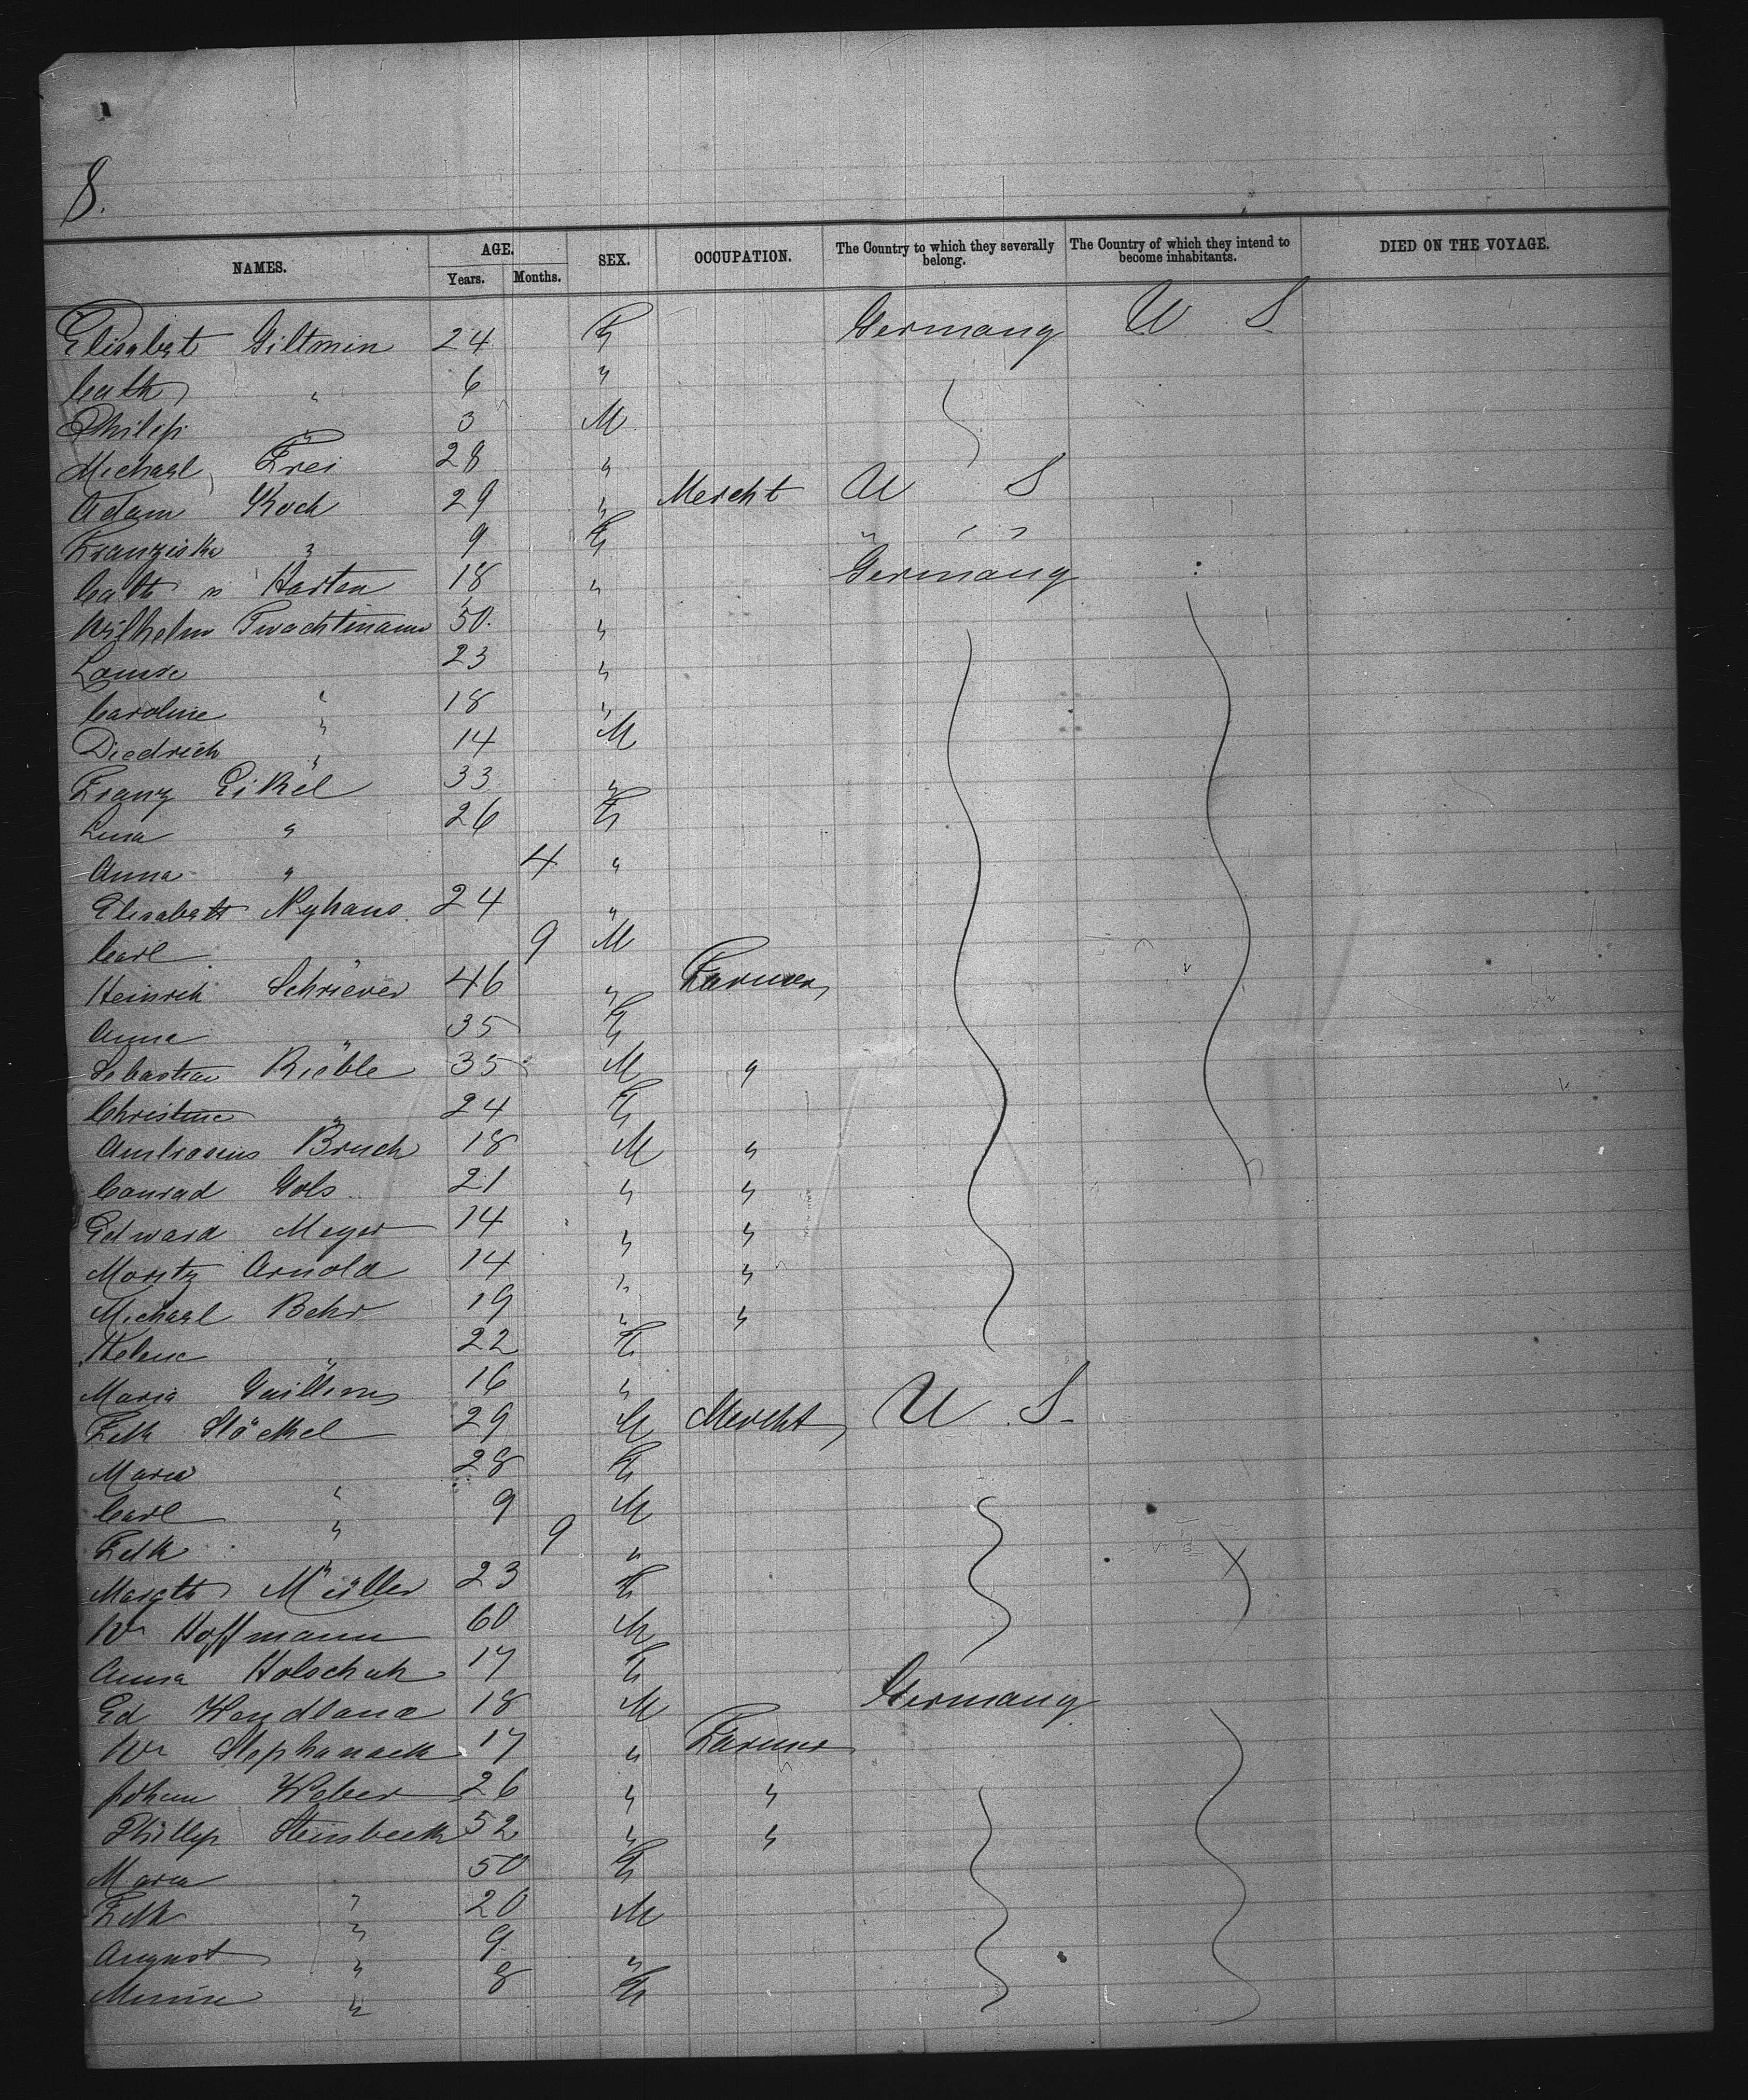 8.
NAMES. AGE. SEX. OCCUPATION. The Country to which they severally belong. The Country of which they intend to become inhabitants. DIED ON THE VOYAGE.
Years. Months.
Elisabet Giltmin 24 F Germany U S
Cath " 6 "
Philip " 3 M
Michael Frei 28 "
Adam Koch 29 " Mercht U S
Franziska " 9 F " " "
Cath v Harten 18 " Germany
Wilhelm Twachtmann 50 "
Louise " 23 "
Caroline " 18 "
Diedrich " 14 M
Franz Eikel 33 "
Lina " 26 F
Anna " 4 "
Elisabeth Nyhaus 24 "
Carl " 9 M
Heinrich Schriever 46 " Farmer
Anna " 35 F
Sebastian Rieble 35 M "
Christine " 24 F
Ambrosius Bruch 18 M "
Conrad Gols 21 " "
Edward Meyer 14 " "
Moritz Arnold 14 " "
Michael Behr 19 " "
Helene " 22 F
Maria 16 "
Fdk Stöckel 29 M Mercht U S
Maria " 28 F
Carl " 9 M
Fdk " 9 "
Margth Müller 23 F
Wm Hoffmann 60 M
Anna Holschuh 17 F
Ed Wendland 18 M Germany
Wm Stephanack 17 " Farmer
Johann Weber 26 " "
Phillip Steinbeck 52 " "
Maria " 50 F
Fdk " 20 M
August " 9 "
Minna " 8 F